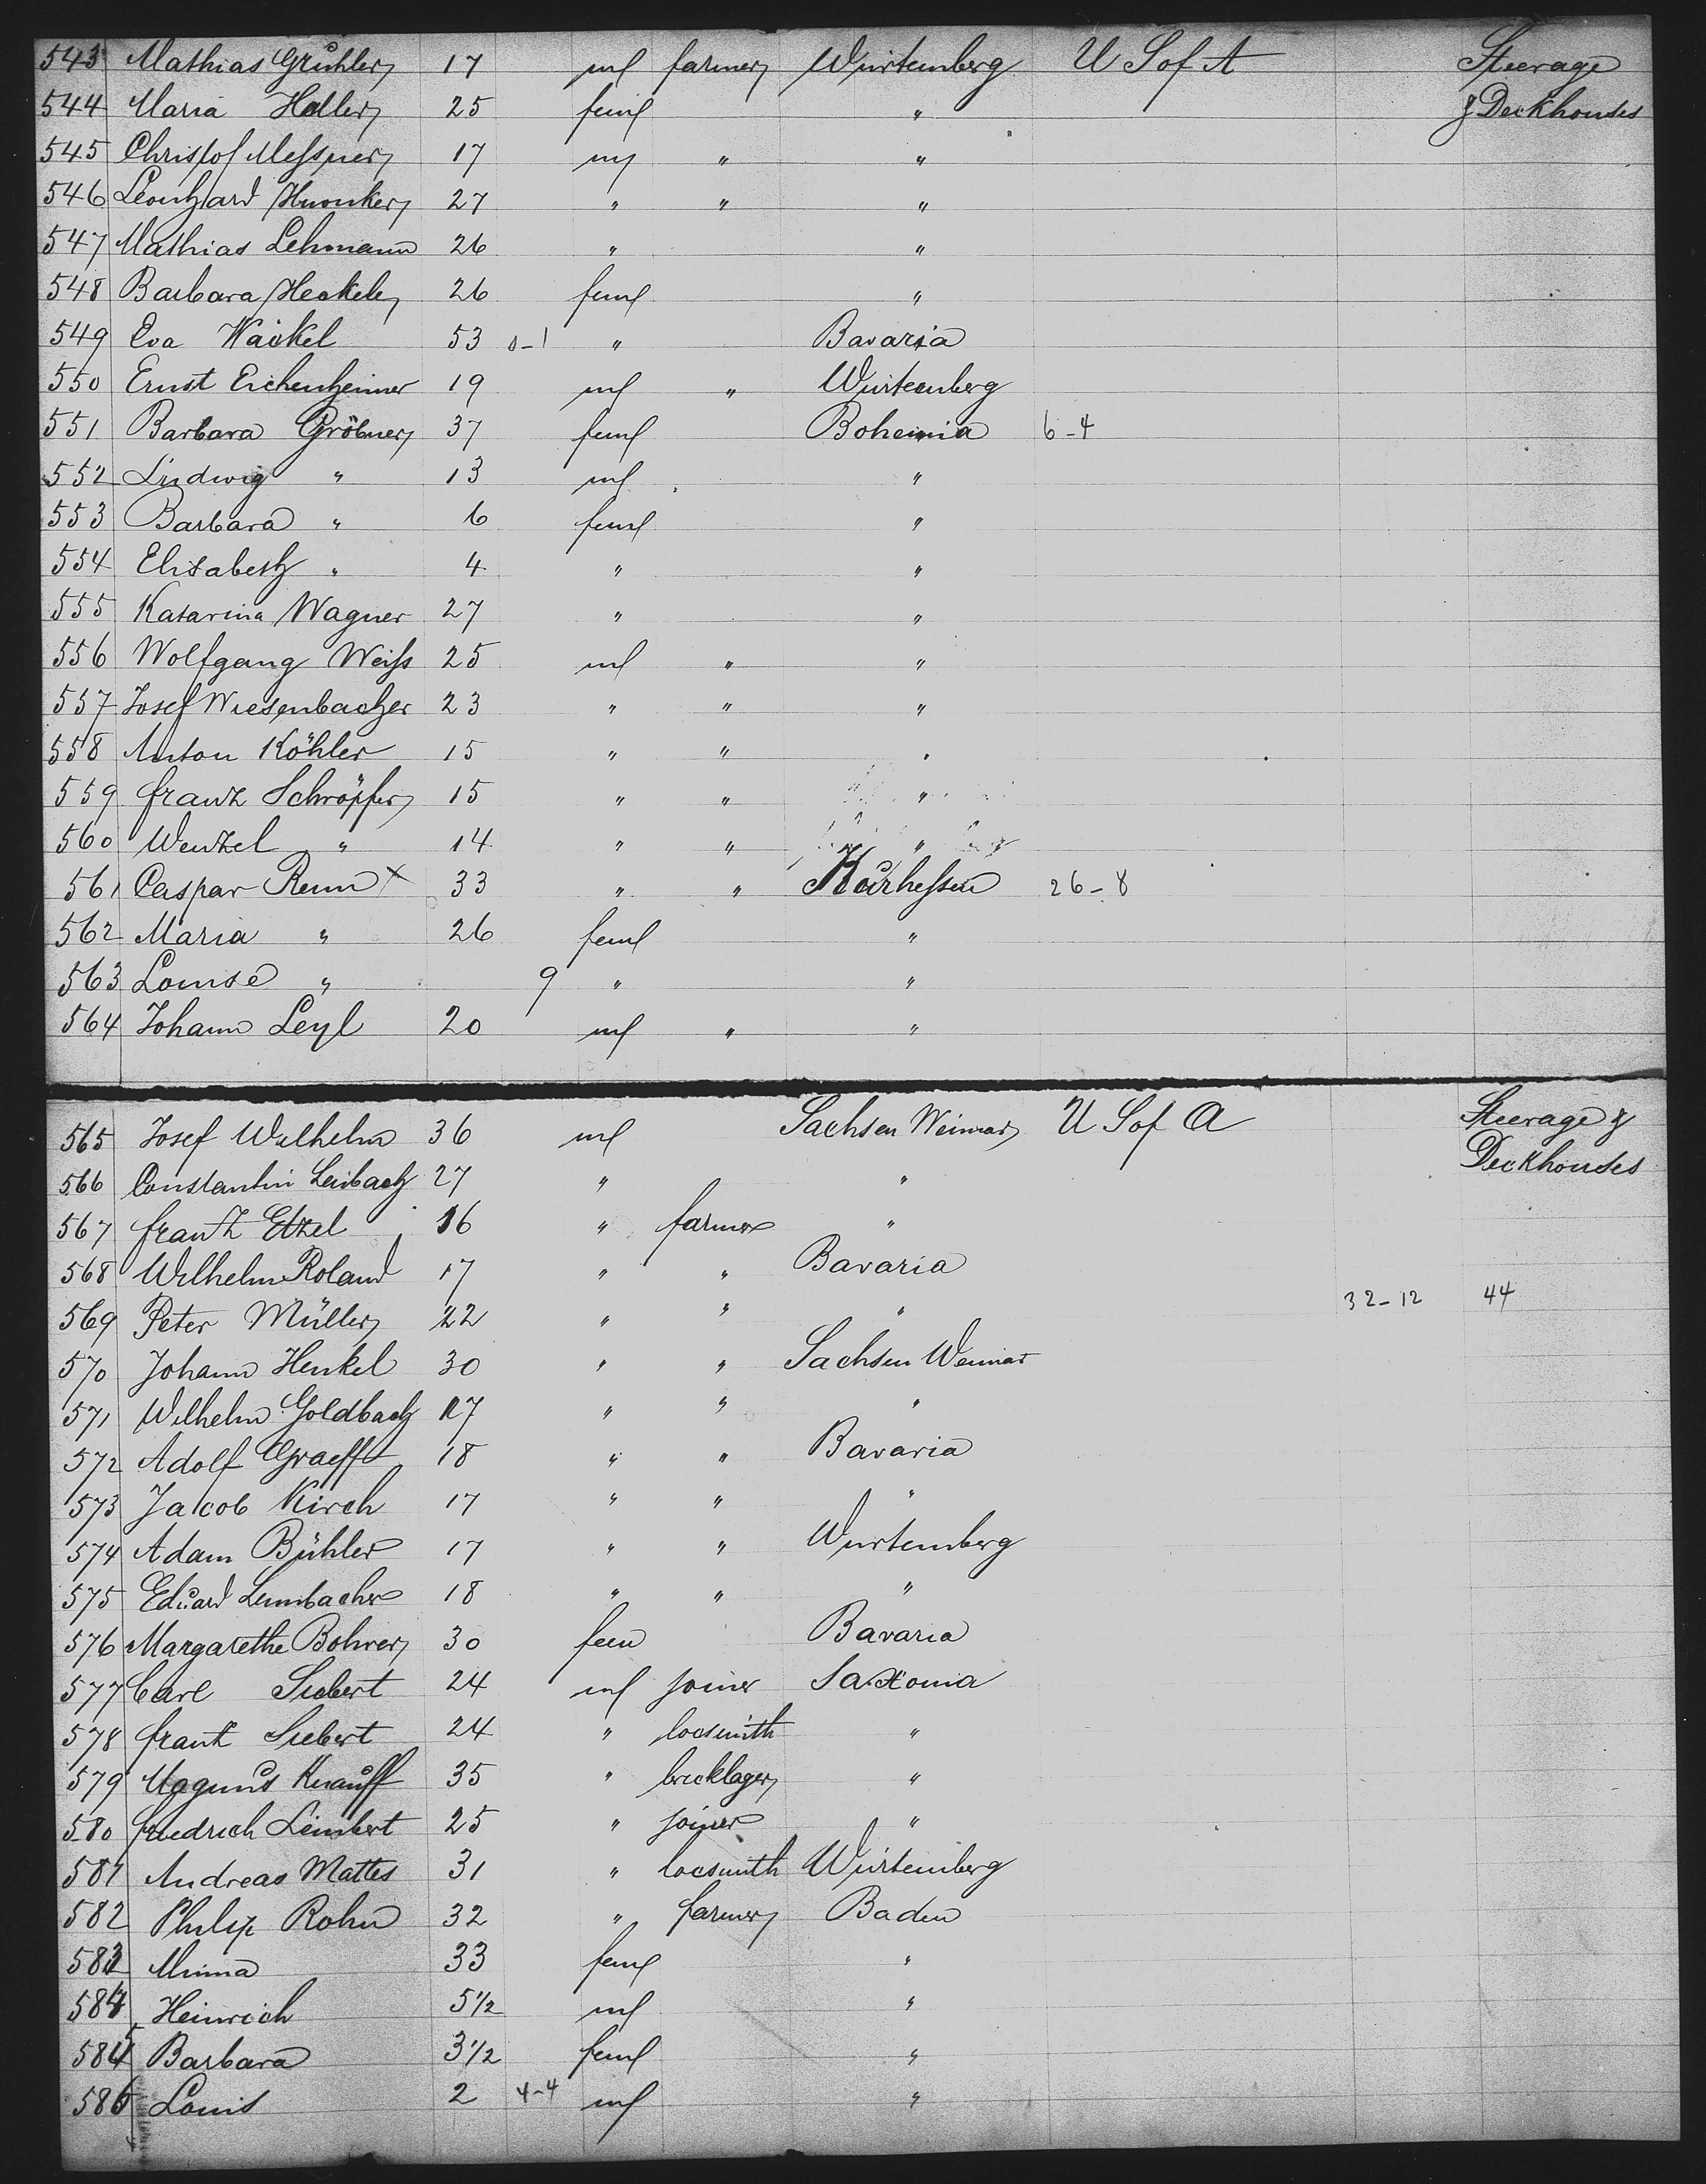 543 Mathias Grühler 17 ml farmer Würtemberg U S of A Steerage
544 Maria Haller 25 feml " & Deckhouses
545 Christof Messner 17 ml " "
546 Leonhard 27 " " "
547 Mathias Lehmann 26 " "
548 Barbara Henkele 26 feml "
549 Eva Waikel 53 0-1 " Bavaria
550 Ernst Eichenheimer 19 ml " Würtemberg
551 Barbara Gröbner 37 feml Bohemia 6-4
552 Ludwig " 13 ml "
553 Barbara " 6 feml "
554 Elisabeth " 4 " "
555 Katarina Wagner 27 " "
556 Wolfgang Weiss 25 ml " "
557 Josef Wiesenbacher 23 " " "
558 Anton Köhler 15 " " "
559 franz Schröpfer 15 " " "
560 Wentzel " 14 " " "
561 Caspar Renn x 33 " " Kurhessen 26-8
562 Maria " 26 feml "
563 Louise " 9 " "
564 Johann Leyl 20 ml " "
565 Josef Wilhelm 36 ml Sachsen Weimar U S of A Steerage &
566 Constantin Leibach 27 " " Deckhouses
567 frantz Etzel 16 " farmer "
568 Wilhelm Roland 17 " " Bavaria
569 Peter Müller 22 " " " 32-12 44
570 Johann Henkel 30 " " Sachsen Weimar
571 Wilhelm Goldbach 17 " " "
572 Adolf Graeff 18 " " Bavaria
573 Jacob Kirch 17 " " "
574 Adam Bühler 17 " " Wurtemberg
575 Eduard Lembacher 18 " " "
576 Margarethe Bohrer 30 fem Bavaria
577 Carl Siebert 24 ml joiner Saxonia
578 frantz Siebert 24 " locsmith "
579 Magnus Knauff 35 " bricklager "
580 friedrich Leimbert 25 " joiner "
581 Andreas Mattes 31 " locsmith Würtemberg
582 Philip Rohn 32 " farmer Baden
583 Minna 33 feml "
584 Heinrich 5 1/2 ml "
585 Barbara 3 1/2 feml "
586 Louis 2 4-4 ml "